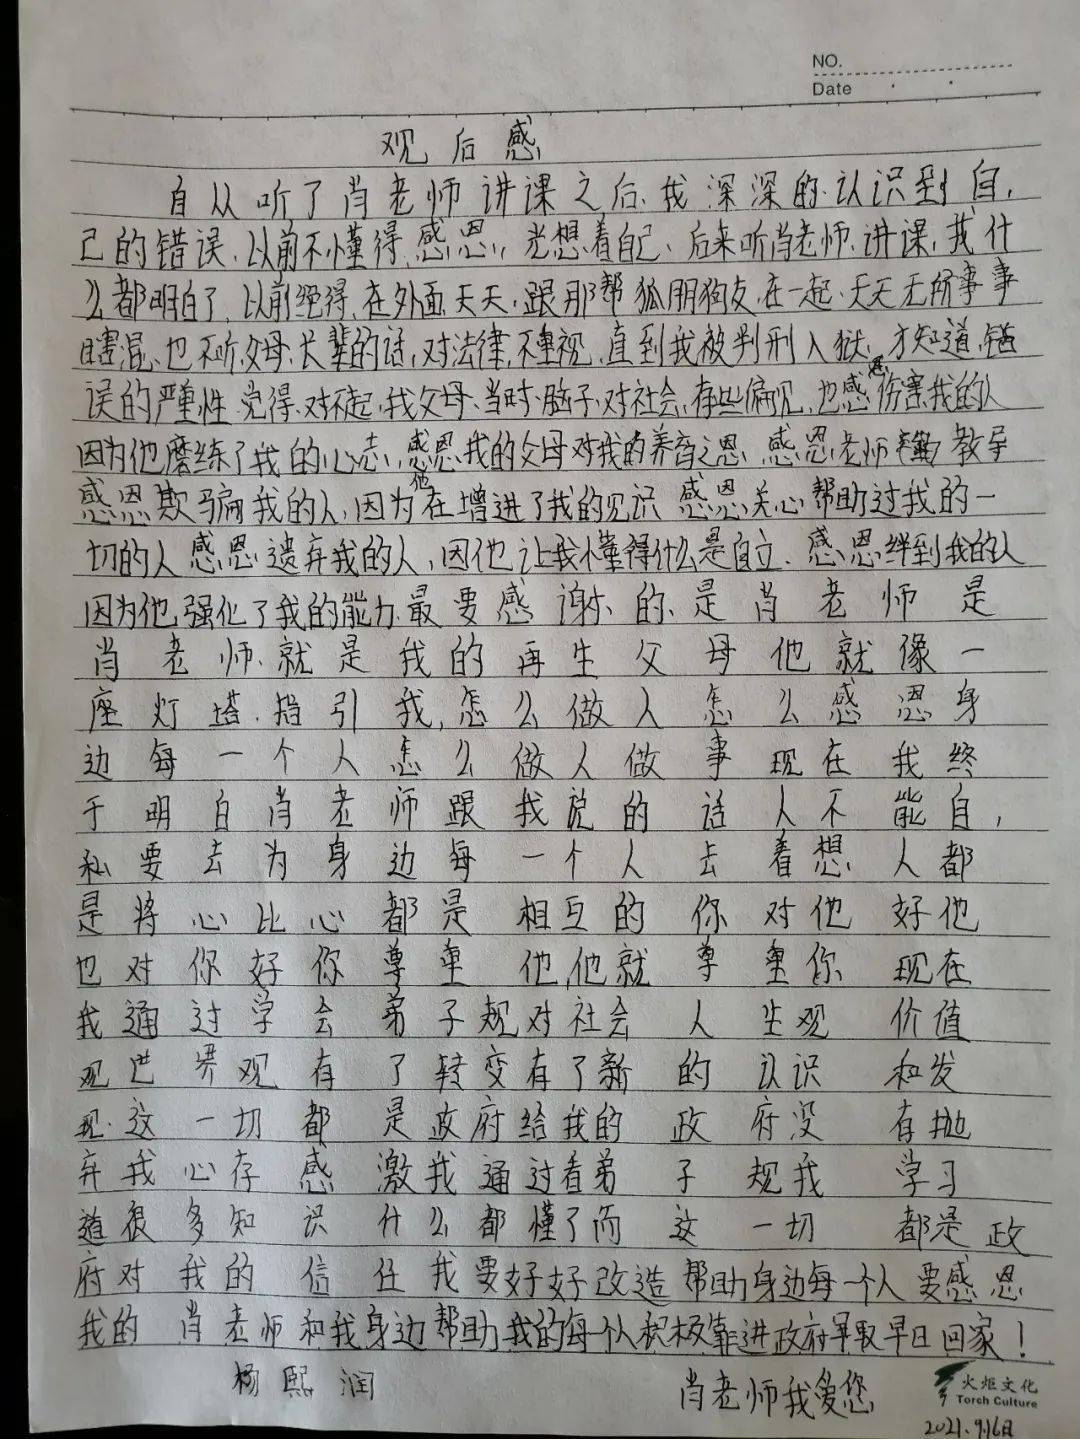 NO.
Date
观后感
自从听了肖老师讲课之后、我深深的认识到自,
己的错误、以前不懂得感恩,光想着自己、后来听肖老师讲课,我什
么都明白了、以前绝得、在外面天天、跟那帮狐朋狗友、在一起、天天无所事事
瞎混、也不听父母、长辈的话,对法律,不重视、直到我被判刑入狱、才知道,错
误的严重性 觉得、对不起,我父母、当时、脑子、对社会、存些偏见、也感恩伤害我的人
因为他磨练了我的心志,感恩我的父母对我的养育之恩、感恩老师 教导
感恩欺骗我的人、因为他在增进了我的见识 感恩关心帮助过我的一
切的人感恩遗弃我的人,因他让我懂得什么是自立、感恩绊到我的人
因为他强化了我的能力、最要感谢的、是肖老师是
肖老师、就是我的再生父母他就像一
座灯塔、指引我,怎么做人怎么感恩身
边每一个人怎么做人做事现在我终
于明白肖老师跟我说的话人不能自,
私要去为身边每一个人去着想人都
是将心比心都是相互的你对他好他
也对你好你尊重他,他就尊重你现在
我通过学会弟子规对社会人生观价值
观世界观有了转变有了新的认识和发
现、这一切都是政府给我的政府没有抛
弃我心存感激我通过看弟子规我学习
道很多知识什么都懂了而这一切都是政
府对我的信任我要好好改造帮助身边每一个人要感恩
我的肖老师和我身边帮助我的每个人积极靠进政府早取早日回家!
杨熙润
肖老师我爱您
火炬文化
Torch Culture
2021.9.16日